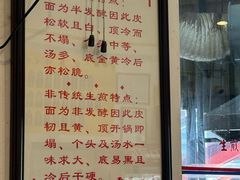 面为半发酵因此皮
松软且白、顶冷而
不塌、
中等、
汤多、底金黄冷后
亦松脆。
非传统生煎特点：
面为非发酵因此皮
韧且黄、顶开锅即
塌、个头及汤水一
味求大、底易黑且
冷后干硬。
生煎